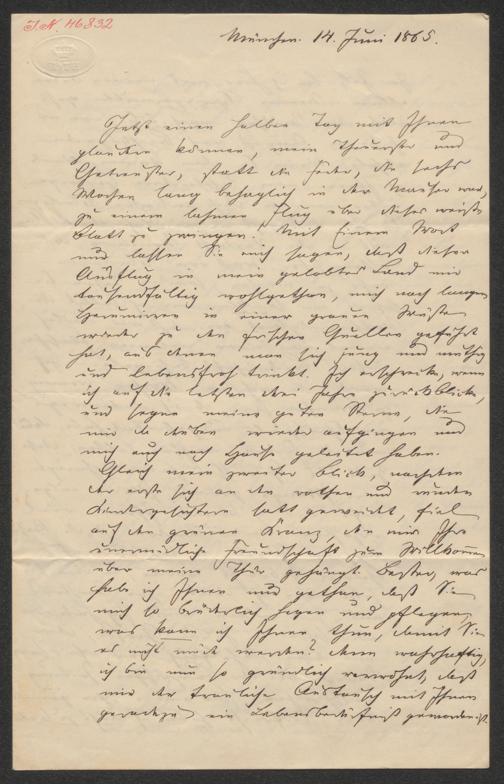 J.N. 46832
München. 14. Juni 1865.
Jetzt einen halben Tag mit Ihnen
plaudern können, mein Theuerster und
Getreuster, statt die Feder, die sechs
Wochen lang behaglich in der Mauser war,
zu einem lahmen Flug über dieses weiße
Blatt zu zwingen! Mit Einem Wort
und lassen Sie mich sagen, daß dieser
Ausflug in mein gelobtes Land mir
tausendfältig wohlgethan, mich nach langem
Herumirren in einer grauen Wüste
wieder zu den frischen Quellen geführt
hat, aus denen man sich jung und muthig
und lebensfroh trinkt. Ich erschrecke, wenn
ich auf die letzten drei Jahre zurückblicke,
und segne meine guten Sterne, die
mir da drüben wieder aufgingen und
mich auch nach Hause geleitet haben.
Gleich mein zweiter Blick, nachdem
der erste sich an den rothen und runden
Kindergesichtern satt geweidet, fiel
auf den grünen Kranz, den mir Ihre
unermüdliche Freundschaft zum Willkomm
über meine Thür gehängt. Bester, was
habe ich Ihnen nur gethan, daß Sie
mich so brüderlich hegen und pflegen,
was kann ich Ihnen thun, damit Sie
es nicht müde werden? Denn wahrhaftig,
ich bin nun so gründlich verwöhnt, daß
mir der trauliche Austausch mit Ihnen
geradezu ein Lebensbedürfniß geworden ist.